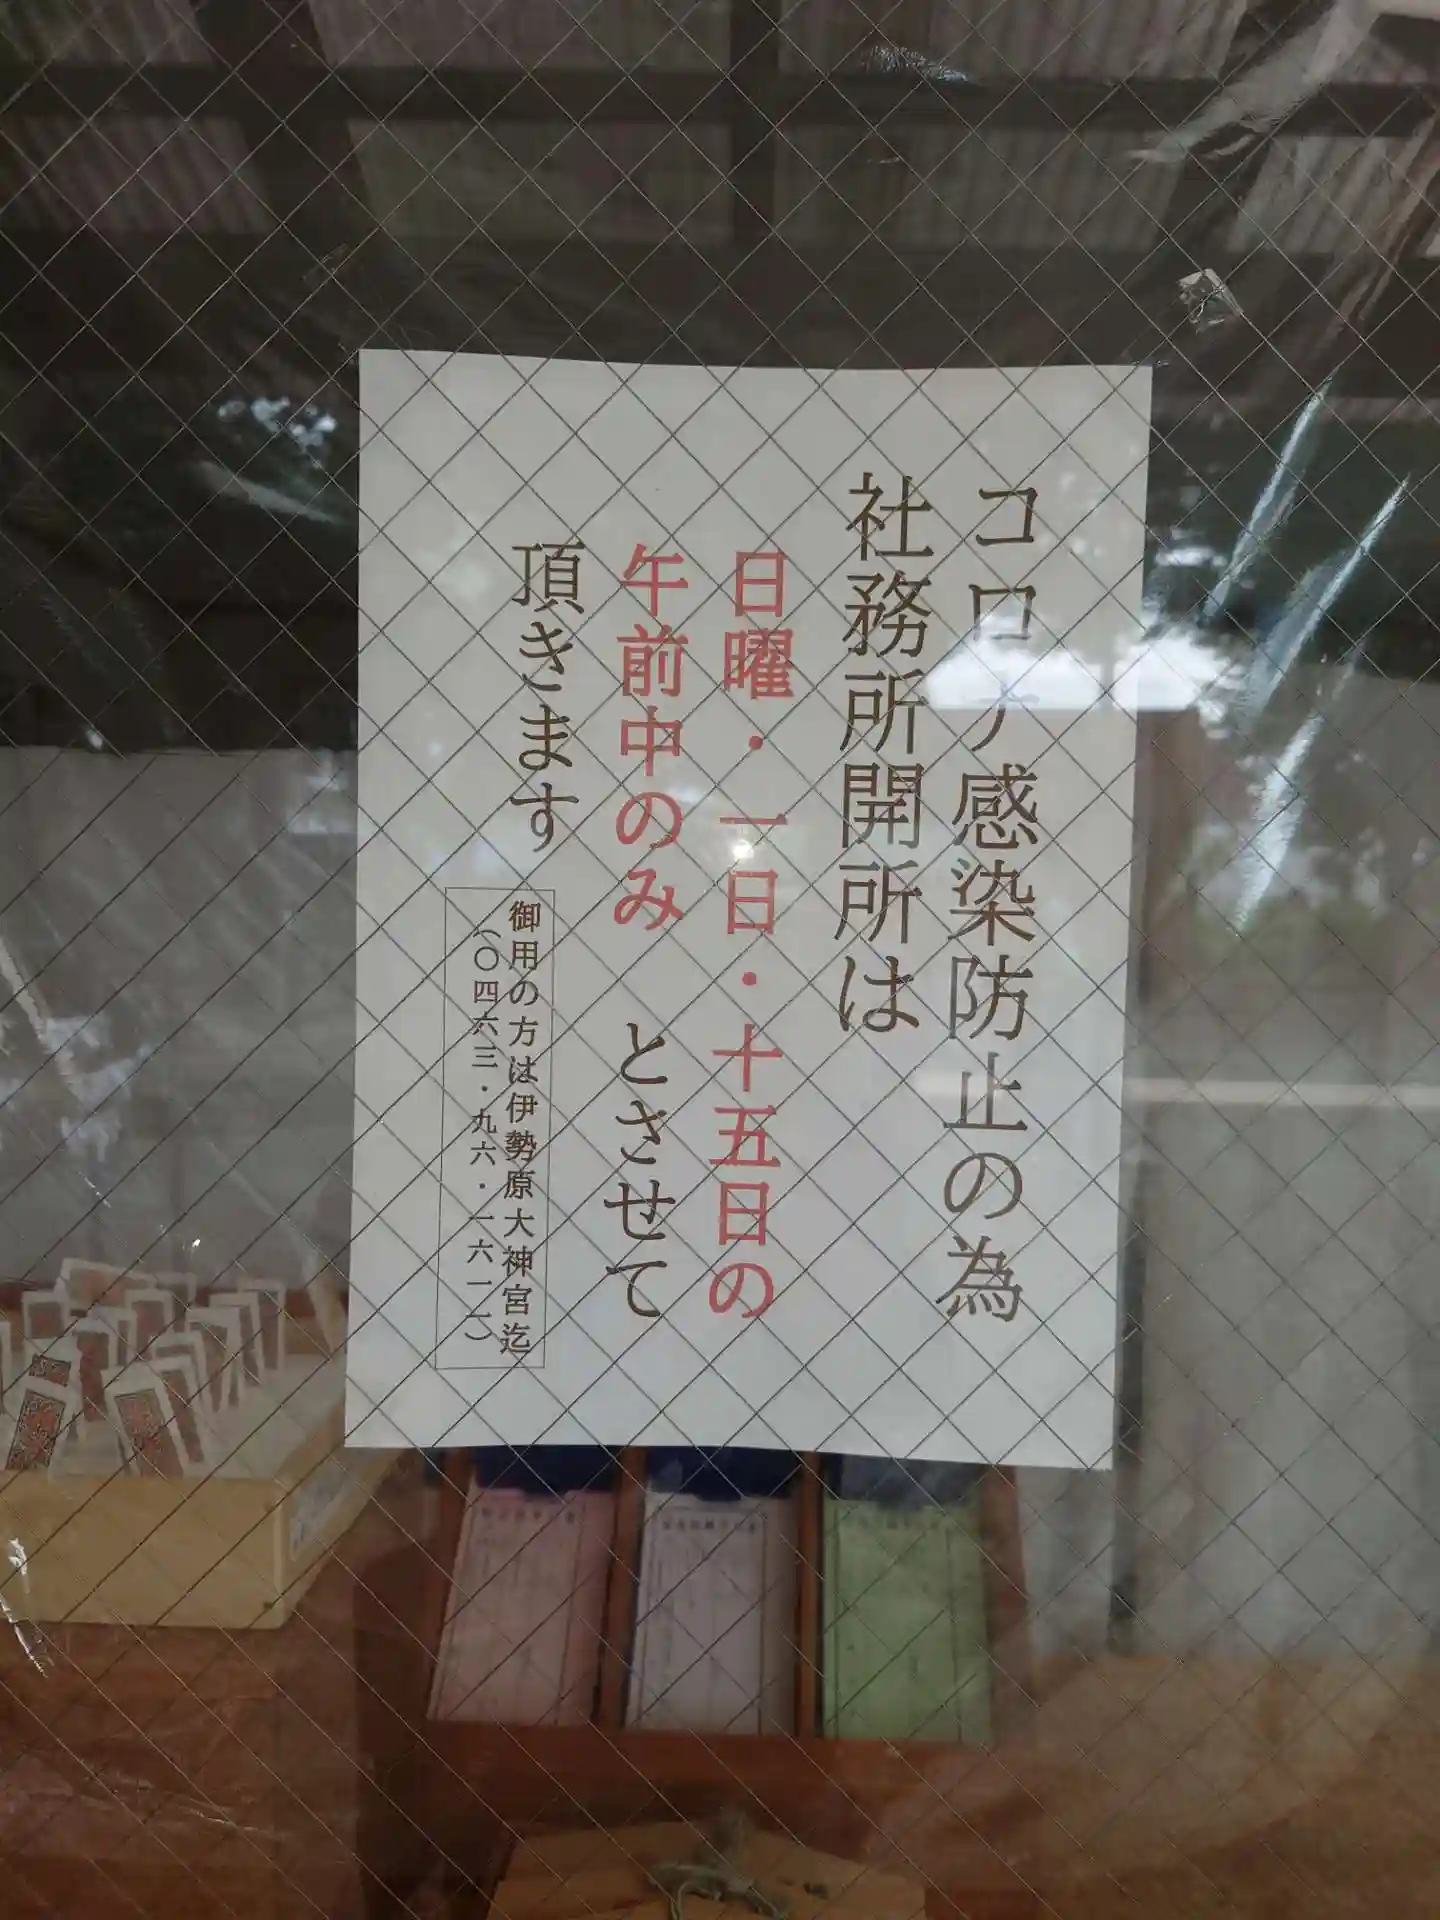 コロナ感染防止の為
社務所開所は
日曜・一日・十五日の
午前中のみ とさせて
頂きます
御用の方は伊勢原大神宮迄
（〇四六三・九六・一六一一）